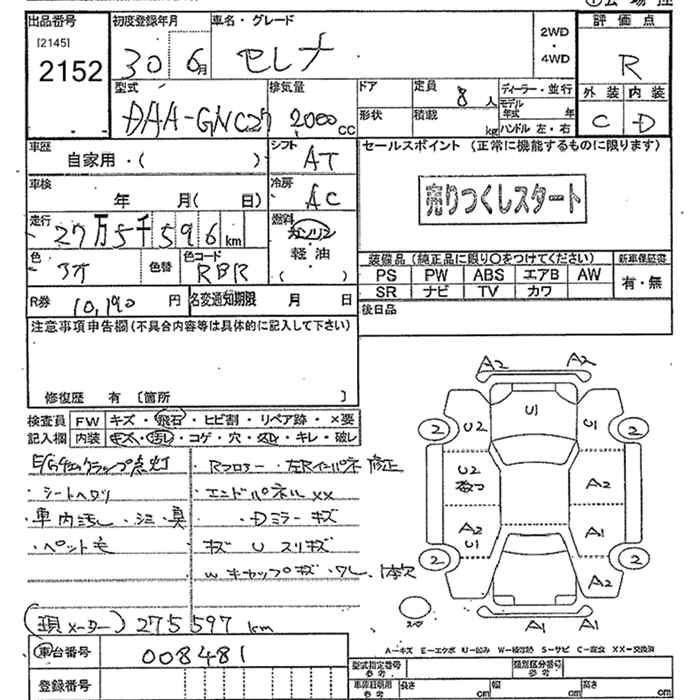 出品番号
[2145]
2152
初度登録年月
30 6月
車名・グレード
セレナ
2WD
・
4WD
評価点
R
外装 内装
C D
型式
DAA-GNC27
排気量
2000 cc
ドア
形状
定員
8 人
積載
kg
ディーラー・並行
モデル年式 年
ハンドル 左・右
車歴
自家用・( )
シフト
AT
車検
年 月( 日)
冷房
AC
走行
27万5千596km
燃料
ガソリン
軽油
( )
色
アオ
色替
色コード
RBR
R券 10,190 円
名変通知期限 月 日
セールスポイント (正常に機能するものに限ります)
売りつくしスタート
装備品(純正品に限り○をつけてください)
新車保証書
PS PW ABS エアB AW
SR ナビ TV カワ
有・無
後日品
注意事項申告欄(不具合内容等は具体的に記入して下さい)
修復歴 有 [箇所 ]
検査員 FW キズ・飛石・ヒビ割・リペア跡・×要
記入欄 内装 キズ・汚れ・コゲ・穴・スレ・キレ・破レ
・シートヘタリ
・車内汚れ・シミ・臭
・ペット毛
・Rフロアー・左Rインパネ 修正
・エンドパネル XX
・Dミラー キズ
キズ U スリキズ
W キャップキズ・ワレ、1体欠
A2 A2
U1
U2 U1
2 2
U2
A2
A2
U1
A1
2 2
A2
A1 A1
A-キズ E-エクボ U-凹み W-補修跡 S-サビ C-腐食 XX-交換済
(現メーター) 275597 km
車台番号 008481
登録番号
型式指定番号
参考
類別区分番号
参考
車庫証明用
参考
長さ cm 幅 cm 高さ cm